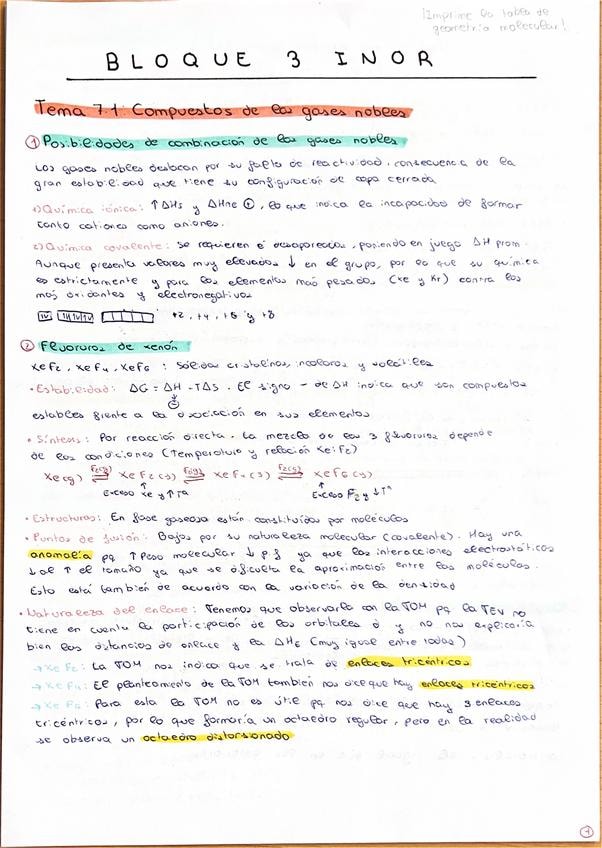 ¡Imprime la tabla de
geometría molecular!
BLOQUE 3 INOR
Tema 7.1: Compuestos de los gases nobles
① Posibilidades de combinación de los gases nobles
Los gases nobles destacan por su falta de reactividad, consecuencia de la
gran estabilidad que tiene su configuración de capa cerrada
1) Química iónica: ↑ΔHs y ΔHne ⊕, lo que indica la incapacidad de formar
tanto cationes como aniones.
2) Química covalente: Se requieren e⁻ desapareados, poniendo en juego ΔH prom.
Aunque presenta valores muy elevados ↓ en el grupo, por lo que su química
es estrictamente y para los elementos más pesados (Xe y Kr) contra los
más oxidantes y electronegativos
+2, +4, +6 y +8
② Fluoruros de xenón
XeF2, XeF4, XeF6: Sólidos cristalinos, incoloros y volátiles
• Estabilidad: ΔG = ΔH - TΔS. El signo - de ΔH indica que son compuestos
⊖
estables frente a la disociación en sus elementos
• Síntesis: Por reacción directa. La mezcla de los 3 fluoruros depende
de las condiciones (Temperatura y relación Xe:F2)
Xe(g) ⇌ F2(g) XeF2(s) ⇌ F2(g) XeF4(s) ⇌ F2(g) XeF6(s)
Exceso Xe y ↑Tª Exceso F2 y ↓Tª
• Estructuras: En fase gaseosa están constituidos por moléculas
• Puntos de fusión: Bajos por su naturaleza molecular (covalente). Hay una
anomalía pq ↑ Peso molecular ↓ p.f ya que las interacciones electrostáticas
↓ al ↑ el tamaño ya que se dificulta la aproximación entre las moléculas.
Esto está también de acuerdo con la variación de la densidad
• Naturaleza del enlace: Tenemos que observarlo con la TOM pq la TEV no
tiene en cuenta la participación de los orbitales d y no nos explicaría
bien las distancias de enlace y la ΔHE (muy igual entre todas)
→ XeF2: La TOM nos indica que se trata de enlaces tricéntricos
→ XeF4: El planteamiento de la TOM también nos dice que hay enlaces tricéntricos
→ XeF6: Para esta la TOM no es útil pq nos dice que hay 3 enlaces
tricéntricos, por lo que formaría un octaedro regular, pero en la realidad
se observa un octaedro distorsionado
1